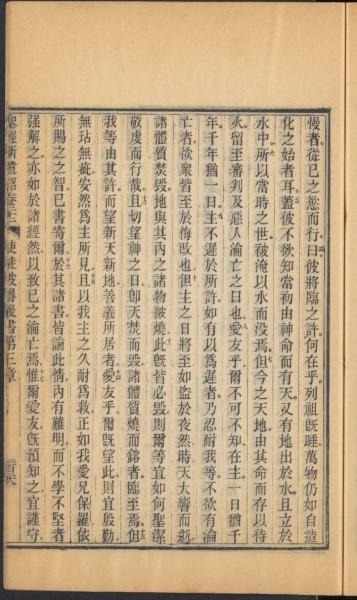 慢者從己之慾而行曰彼將臨之許何在乎列祖旣睡萬物仍如自造
化之始者耳蓋彼不欲知當初由神命而有天又有地出於水且立於
水中所以當時之世被淹以水而沒焉但今之天地由其命而存以待
火留至審判及惡人淪亡之日也愛友乎爾不可不知在主一日猶千
年千年猶一日主不遲於所許如有以爲遲者乃忍耐我等不欲有淪
亡者欲衆皆至於悔改也但主之日將至如盜於夜然時天大響而逝
諸體質焚毀地與其內之諸物被燒此旣皆必毀則爾等宜如何聖潔
敬虔而行哉且切望神之日卽天焚而毀諸體質燒而鎔者臨至焉但
我等由其許而望新天新地善義所居者愛友乎爾旣望此則宜殷勤
無玷無疵安然爲主所見且以我主之久耐爲救正如我愛兄保羅依
所賜之之智已書寄爾於其諸書皆論此情內有難明而不學不堅者
强解之亦如於諸經然以致己之淪亡焉惟爾愛友旣預知之宜謹守
聖經新遺詔卷三 使徒彼得後書第三章